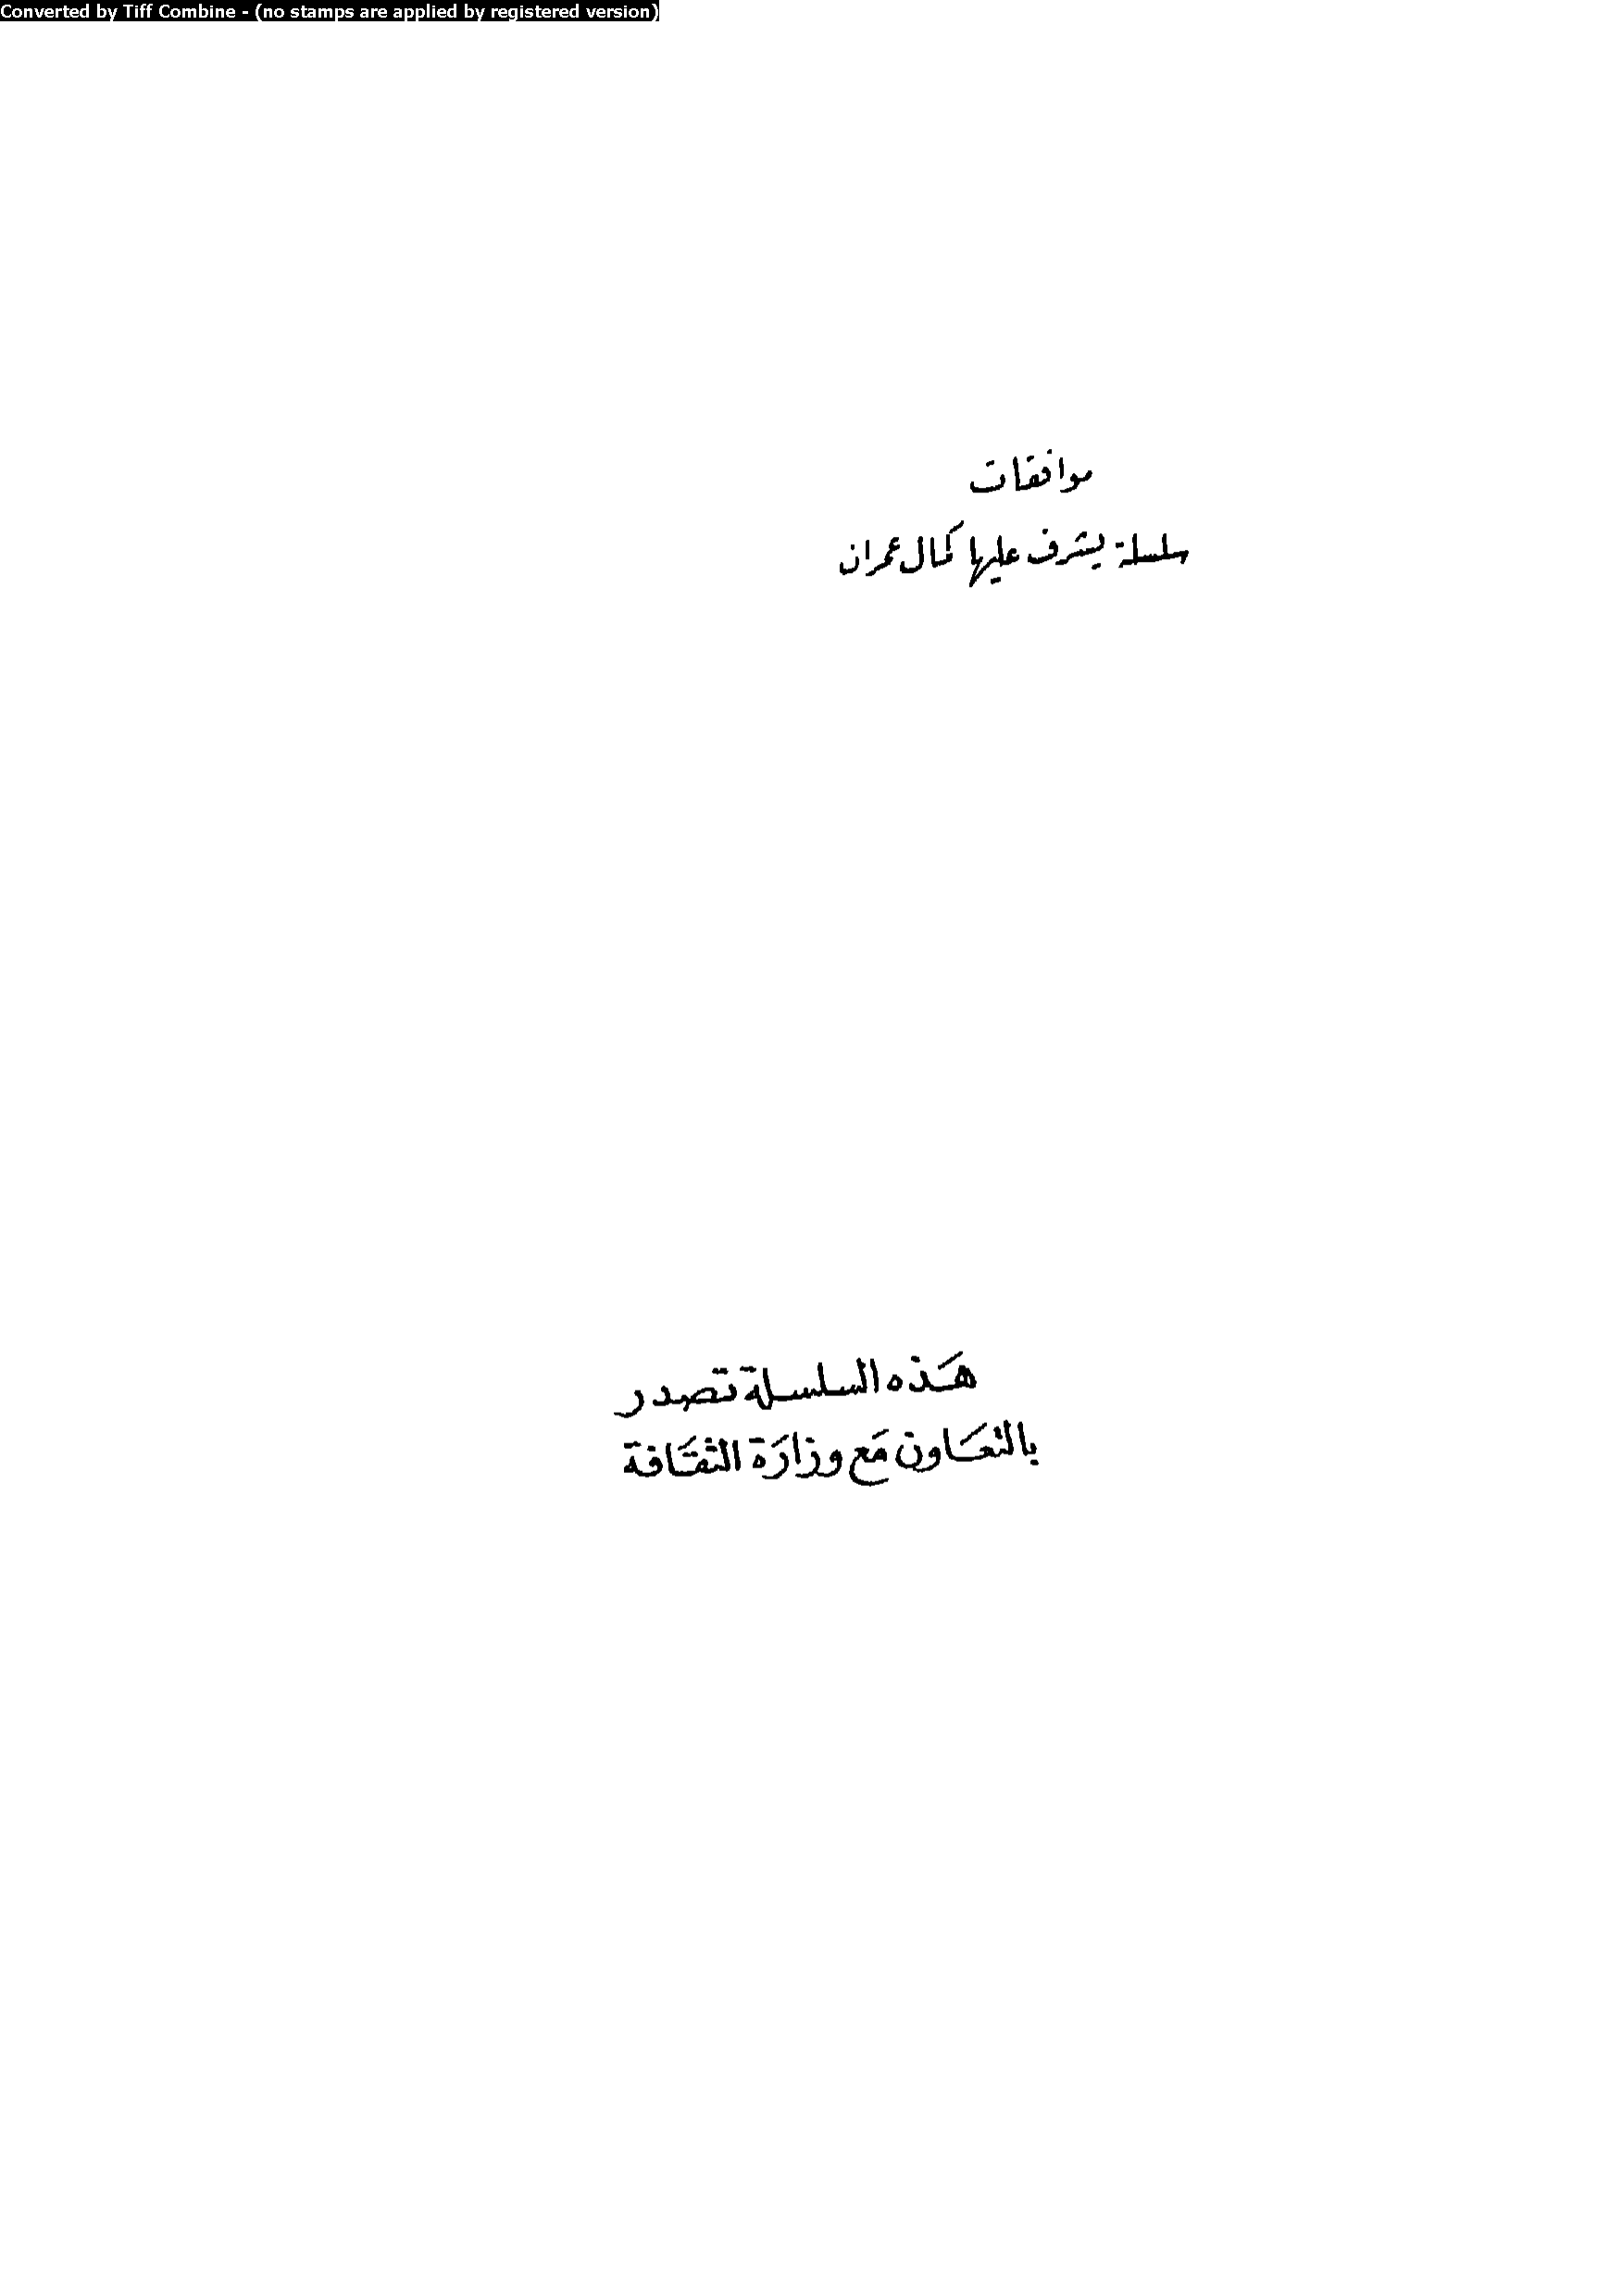 Converted by Tiff Combine - (no stamps are applied by registered version)
موافقات
سلسلة يشرف عليها كمال عمران
هَذه السلسلة تصدر
بالتعَاون مَع وزارَة الثقَافة